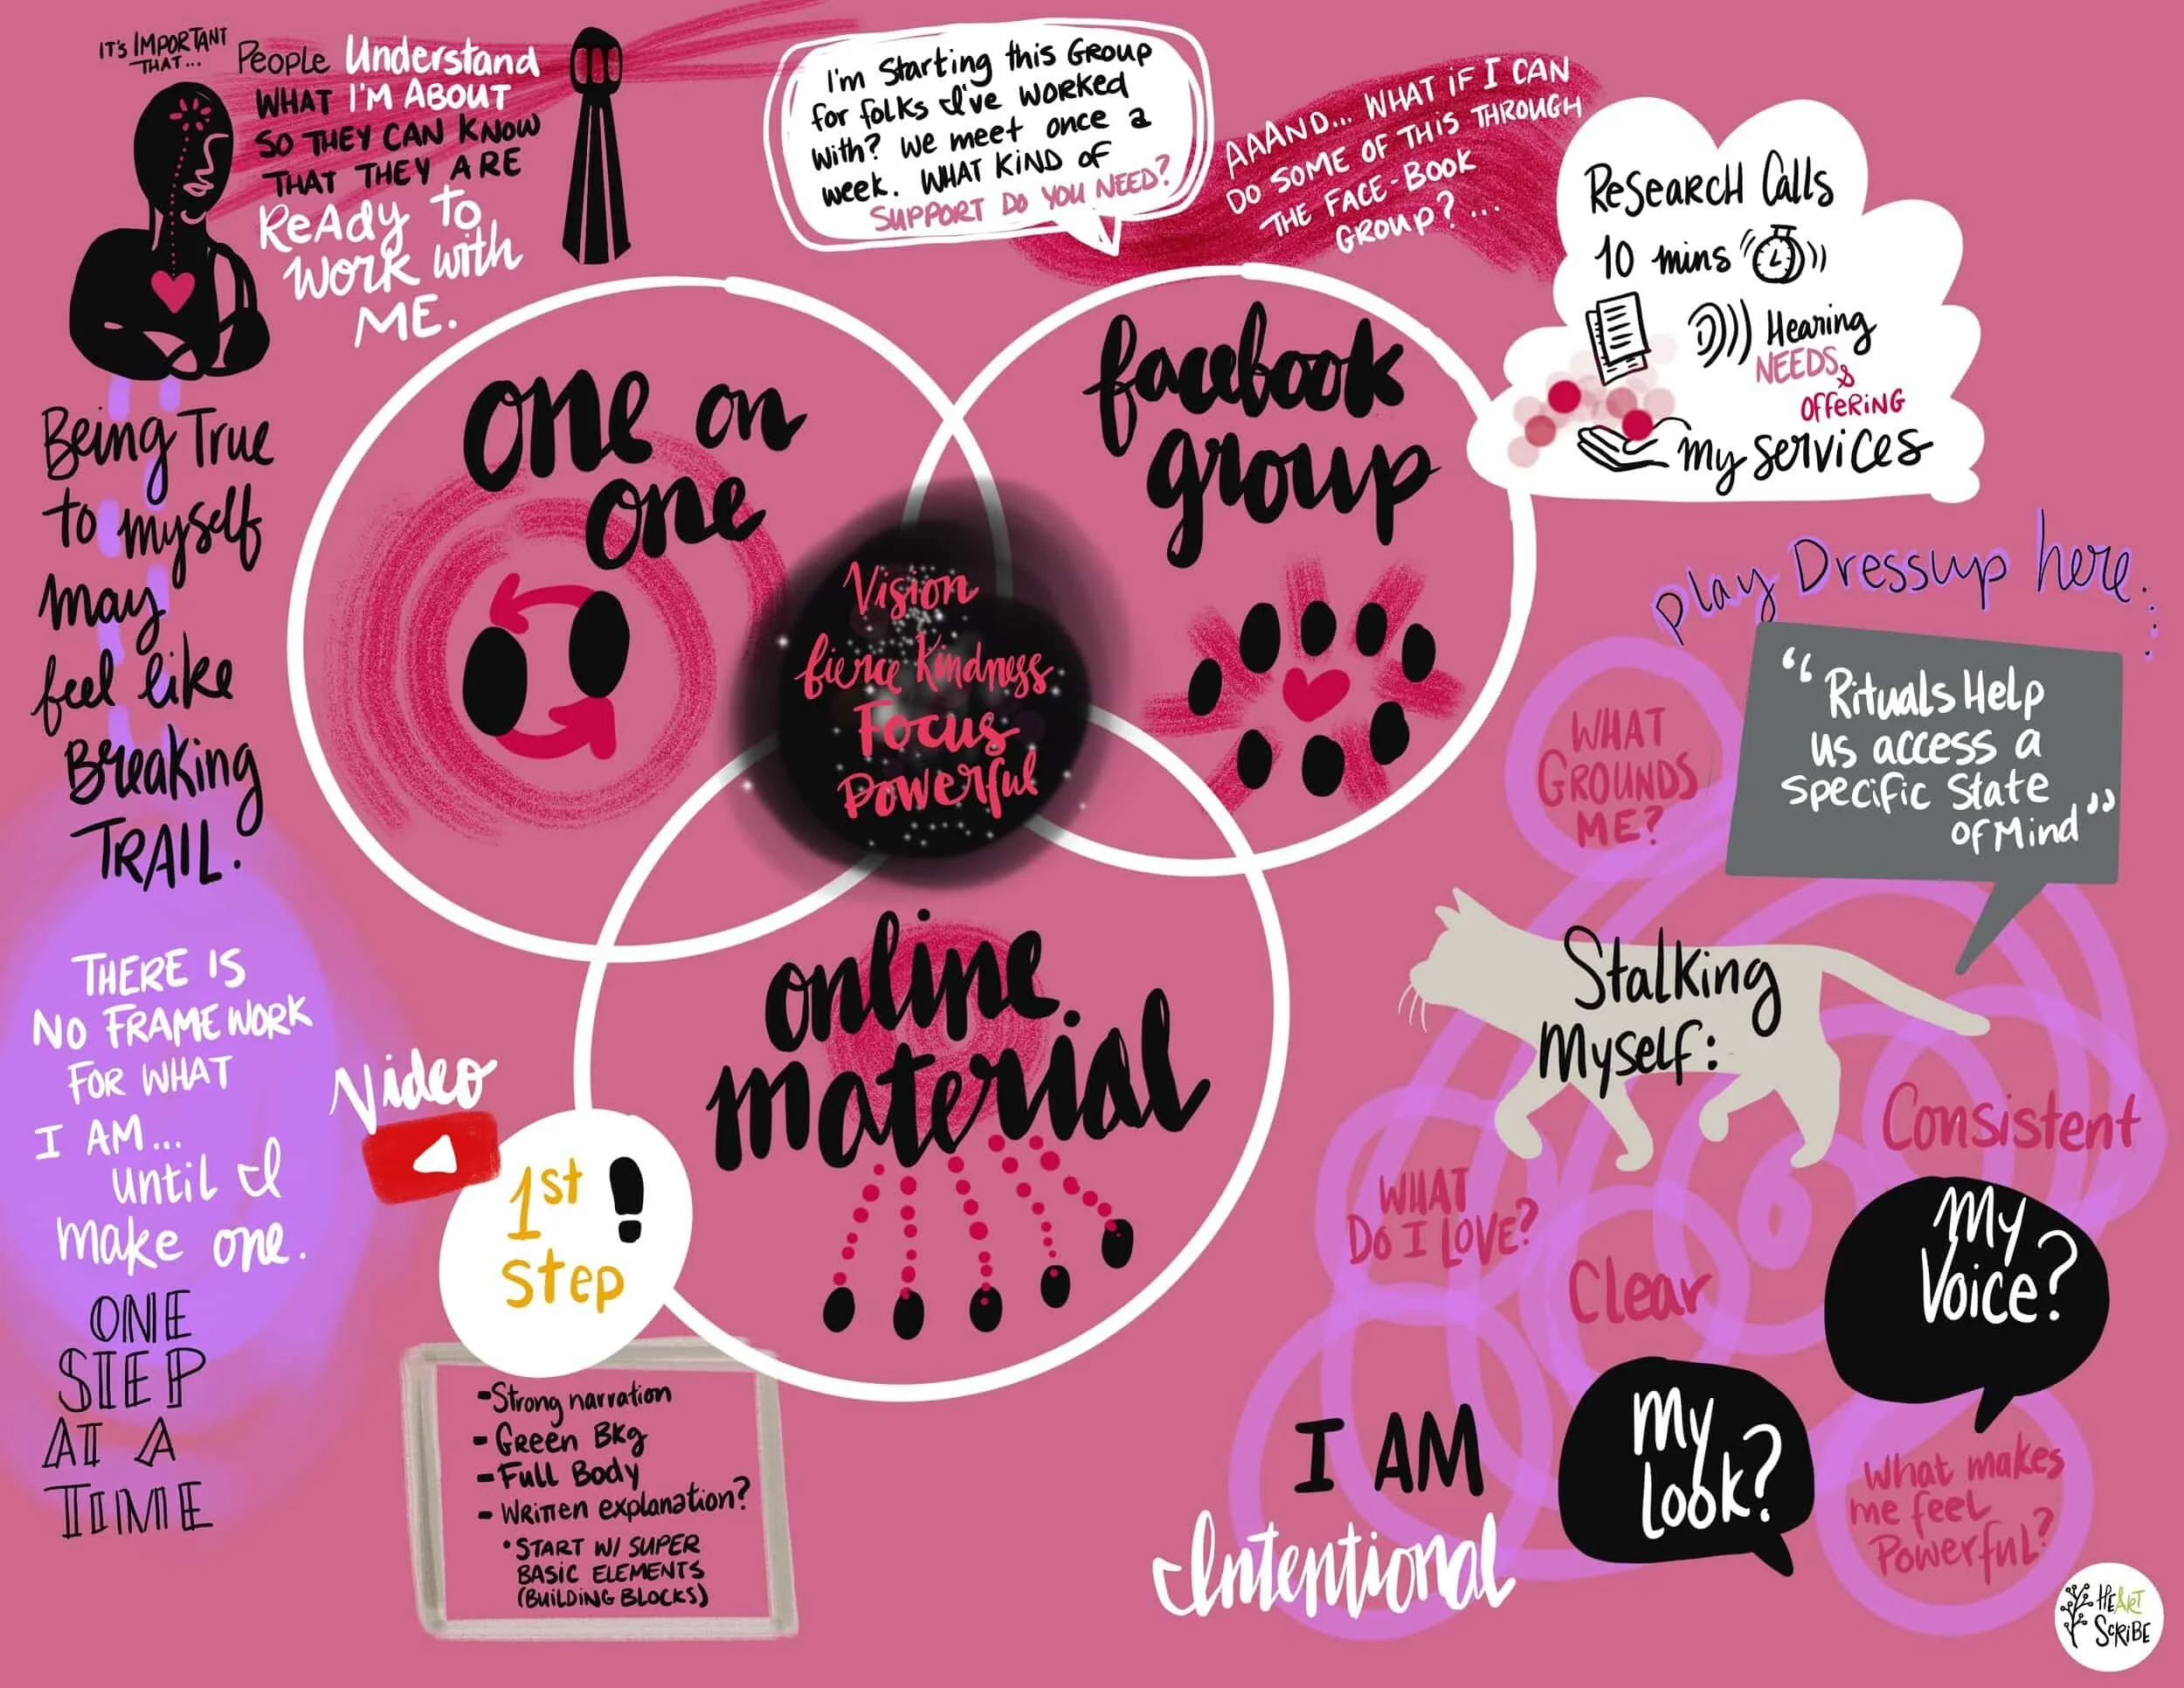 IT'S IMPORTANT
THAT...
People Understand
WHAT I'M ABOUT
SO THEY CAN KNOW
THAT THEY ARE
ReAdy to
WORK with
ME.
I'm Starting this GROUP
for folks I've worked
with? We meet once a
week. WHAT KIND OF
SUPPORT DO YOU NEED?
AAAND... WHAT IF I CAN
DO SOME OF THIS THROUGH
THE FACE-BOOK
GROUP? ...
ReSeaRCH Calls
10 mins
Hearing
NEEDS &
OffeRiNG
my services
Being True
to myself
may
feel like
Breaking
TRAIL.
THERE IS
NO FRAMEWORK
FOR WHAT
I AM...
until I
make one.
ONE
STEP
AT A
TIME
one on
one
facebook
group
Vision
fierce Kindness
Focus
Powerful
online
material
Video
1st
Step
!
-Strong narration
- Green Bkg
- Full Body
- Written explanation?
• START W/ SUPER
BASIC ELEMENTS
(BUILDING BLOCKS)
play Dressup here...
WHAT
GROUNDS
ME?
“Rituals Help
us access a
Specific State
of Mind”
Stalking
Myself:
Consistent
WHAT
DO I LOVE?
Clear
My
Voice?
My
look?
What makes
me feel
Powerful?
I AM
Intentional
HEART
SCRIBE